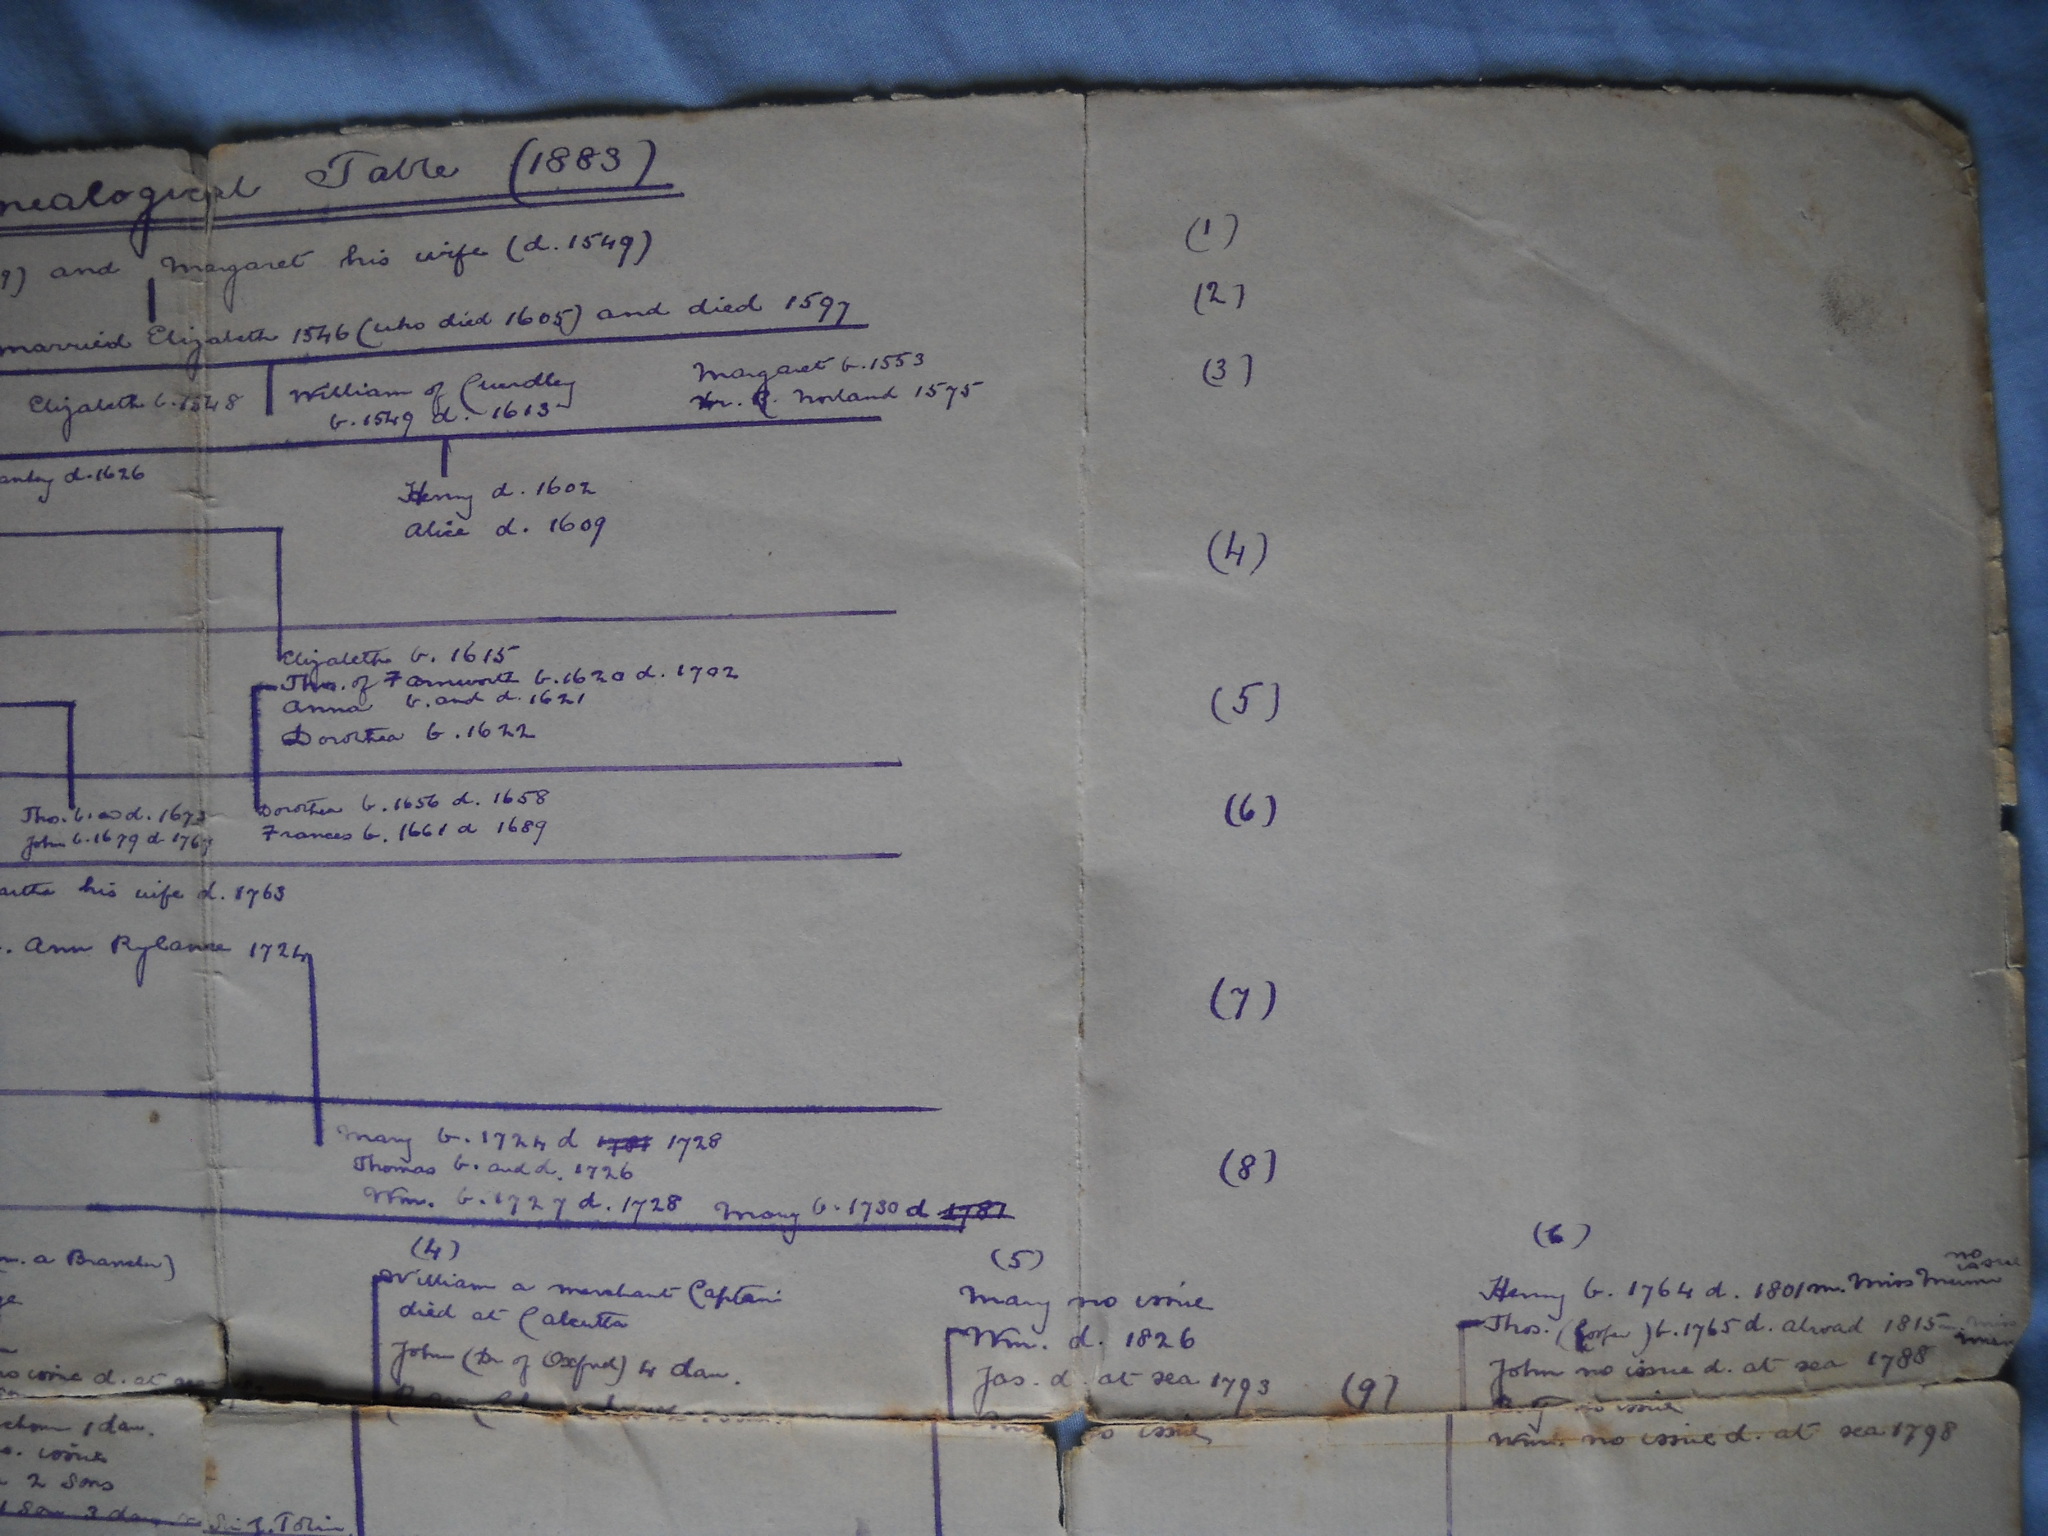 nealogical Table (1883)
9) and Margaret his wife (d. 1549)
(1)
married Elizabeth 1546 (who died 1605) and died 1597
(2)
Elizabeth b. 1548
William of Cuerdley
b. 1549 d. 1613
Margaret b. 1553
Norland 1575
(3)
d. 1626
Henry d. 1602
Alice d. 1609
(4)
Elizabeth b. 1615
Thos. of Farnworth b. 1620 d. 1702
Anna b. and d. 1621
Dorothea b. 1622
(5)
Tho. b. and d. 1673
John b. 1679 d.
Dorothea b. 1656 d. 1658
Frances b. 1661 d 1689
(6)
artha his wife d. 1763
. Ann Rylance 1724
(7)
Mary b. 1724 d 1781 1728
Thomas b. and d. 1726
Wm. b. 1727 d. 1728 Mary b. 1730 d 1781
(8)
m. a Brancker)
(4)
William a merchant Captain
died at Calcutta
John (Dr of Oxford) 4 dau.
(5)
Mary no issue
Wm. d. 1826
Jas. d. at sea 1793
no issue
(9)
(6)
Henry b. 1764 d. 1801 m. Miss no issue
Thos. b. 1765 d. abroad 1815
John no issue d. at sea 1788
no issue
Wm. no issue d. at sea 1798
no issue d. at sea
1 dau.
issue
2 Sons
1 Son 3 dau J. Tobin